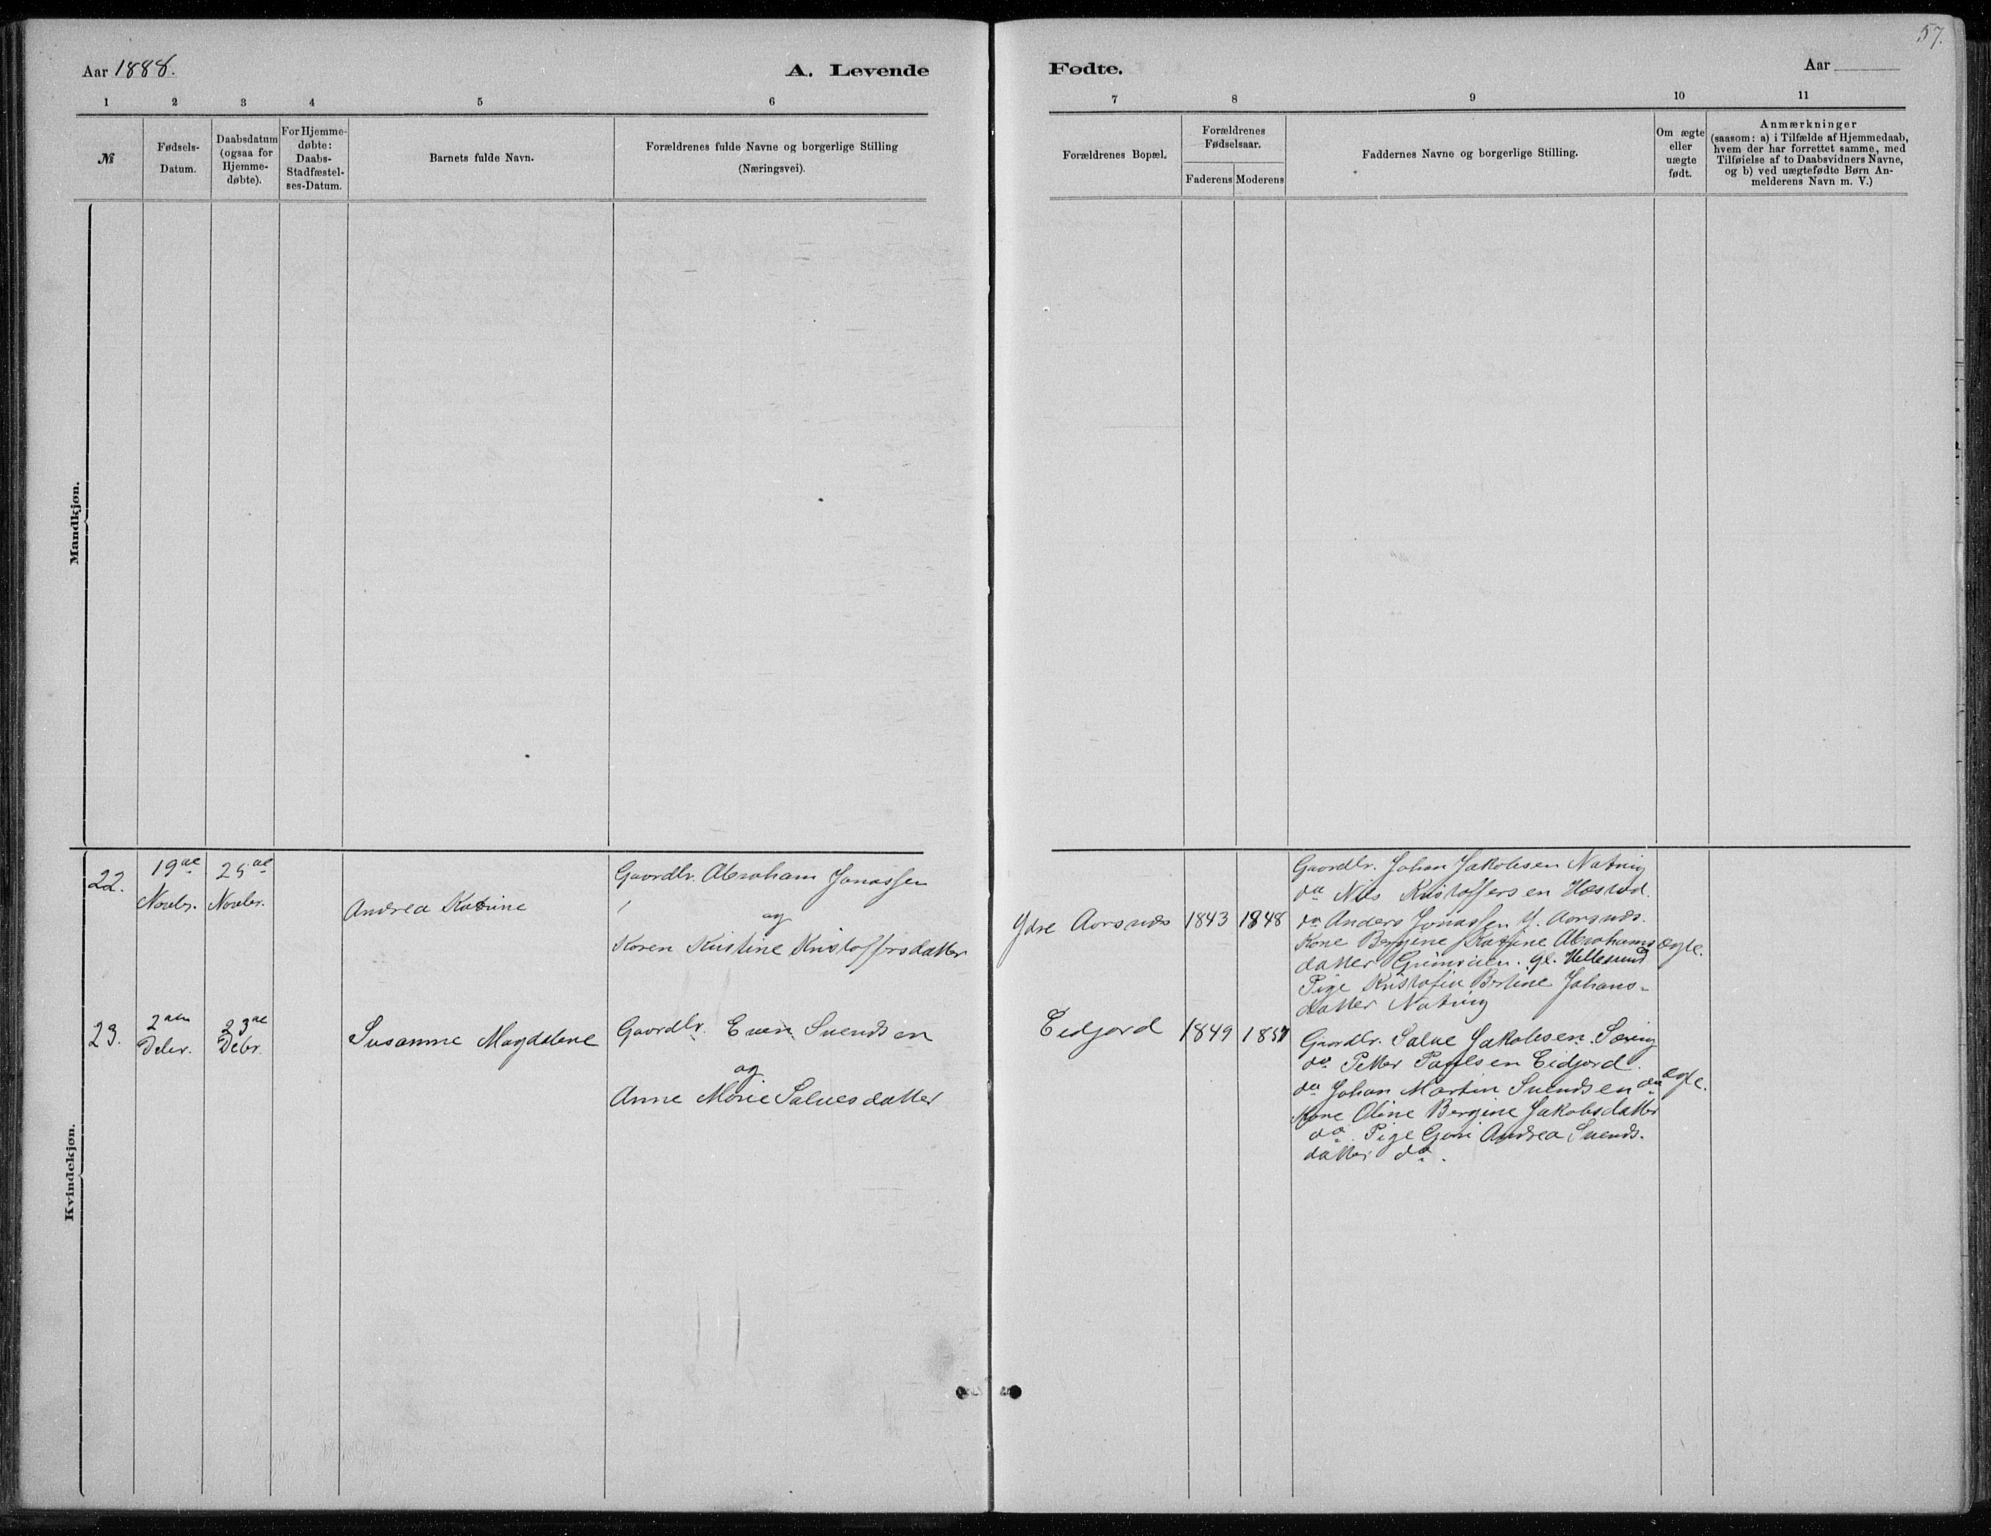 57.
Aar 1888.
A. Levende
Fødte.
Aar
1 2 3 4 5 6
7 8 9 10 11
№
Fødsels-
Datum.
Daabsdatum
(ogsaa for
Hjemme-
døbte).
For Hjemme-
døbte:
Daabs-
Stadfæstel-
ses-Datum.
Barnets fulde Navn.
Forældrenes fulde Navne og borgerlige Stilling
(Næringsvei).
Forældrenes Bopæl.
Forældrenes
Fødselsaar.
Faderens Moderens
Faddernes Navne og borgerlige Stilling.
Om ægte
eller
uægte
født.
Anmærkninger
(saasom: a) i Tilfælde af Hjemmedaab,
hvem der har forrettet samme, med
Tilføielse af to Daabsvidners Navne,
og b) ved uægtefødte Børn An-
melderens Navn m. V.)
Mandkjøn.
Kvindekjøn.
22.
19de
Novbr.
25de
Novbr.
Andrea Katrine
Gaardbr. Abraham Jonassen
og
Karen Kristine Kristoffersdatter
Ydre Aarsnæs 1843 1848
Gaardbr. Johan Jakobsen
do Nils Kristoffersen Hæstad.
do Anders Jonassen Y. Aarsnæs.
Kone Bergine Katrine Abrahams
datter gl. Hellesund
Pige Kristofin Bertine Johans-
datter
ægte.
23.
2den
Debr.
23de
Debr.
Susanne Magdalene
Gaardbr. Even Svendsen
og
Anne Marie Salvesdatter
Eidjord 1849 1851
Gaardbr. Salve Jakobsen
do Petter Paulsen Eidjord.
do Johan Martin Svendsen do
Kone Oline Bergine Jakobsdatter
do. Pige Andrea Svends-
datter do.
ægte.